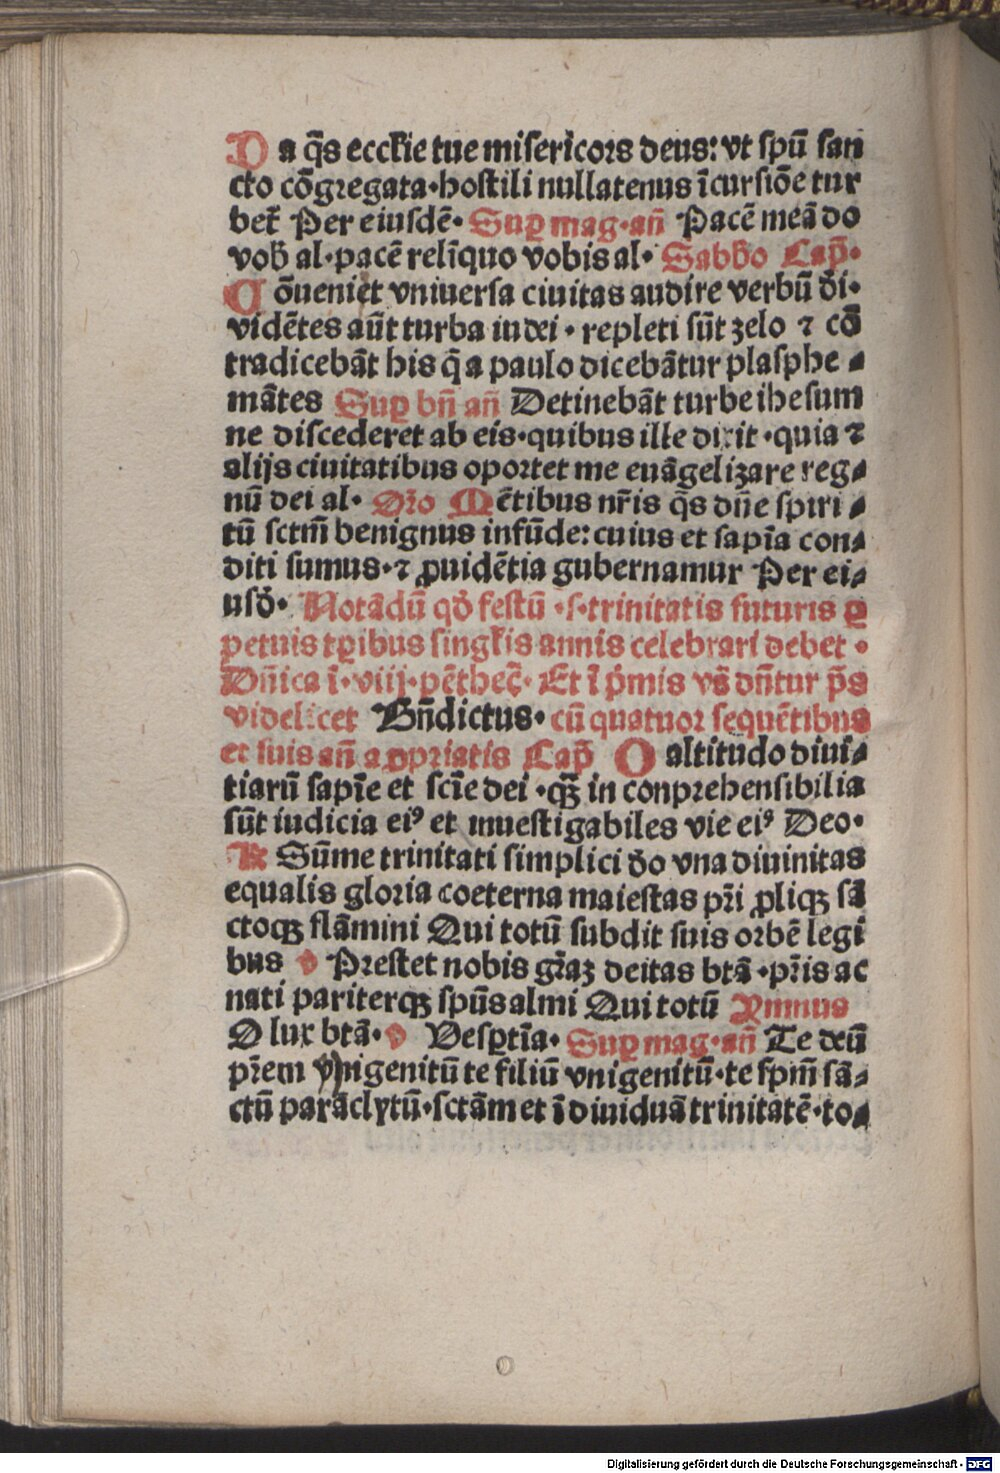 Da q̄s eccƚie tue misericors deus: vt spū san
cto cōgregata·hostili nullatenus īcursiōe tur
bet᷑ Per eiusdē· Sup̱ mag·an̄ Pacē meā do
vob̄ al·pacē relīquo vobis al· Sabb̄o Cap̄·
Cōueniet vniuersa ciuitas audire verbū d̄i·
vidētes aūt turba iudei·repleti sūt zelo ⁊ cō
tradicebāt his q̄ a paulo dicebātur plasphe⸗
mātes Sup̱ bn̄ an̄ Detinebāt turbe ihesum
ne discederet ab eis·quibus ille dixit·quia ⁊
alijs ciuitatibus oportet me euāgelizare reg⸗
nū dei al· Or̄o Mētibus nr̄is q̄s dn̄e spiri⸗
tū sctm̄ benignus infūde: cuius et sapīa con⸗
diti sumus·⁊ ꝓuidētia gubernamur Per ei⸗
usd̄· Notādū qd̄ festū·s·trinitatis futuris ꝑ
petuis tꝑibus singƚis annis celebrari debet·
Dn̄ica ī·viij·pēthec̄· Et ī p̄mis vs̄ dn̄tur p̄s
videlicet Bn̄dictus· cū quatuor sequētibus
et suis an̄ a ꝓpriatis Cap̄ O altitudo diui⸗
tiarū sapīe et scīe dei·qꝫ̄ in conprehensibilia
sūt iudicia eiꝰ et inuestigabiles vie eiꝰ Deo·
R Sūme trinitati simplici d̄o vna diuinitas
equalis gloria coeterna maiestas pr̄i ꝓliqꝫ sā
ctoqꝫ flāmini Qui totū subdit suis orbē legi
bus v Prestet nobis gr̄aꝫ deitas btā·pr̄is ac
nati pariterqꝫ spūs almi Qui totū Ymnus
O lux btā· v Vesꝑtīa· Sup̱ mag·an̄ Te deū
pr̄em vnigenitū te filiū vnigenitū·te spm̄ sā⸗
ctū paraclytū·sctām et īdiuiduā trinitatē·to⸗
Digitalisierung gefördert durch die Deutsche Forschungsgemeinschaft - DFG